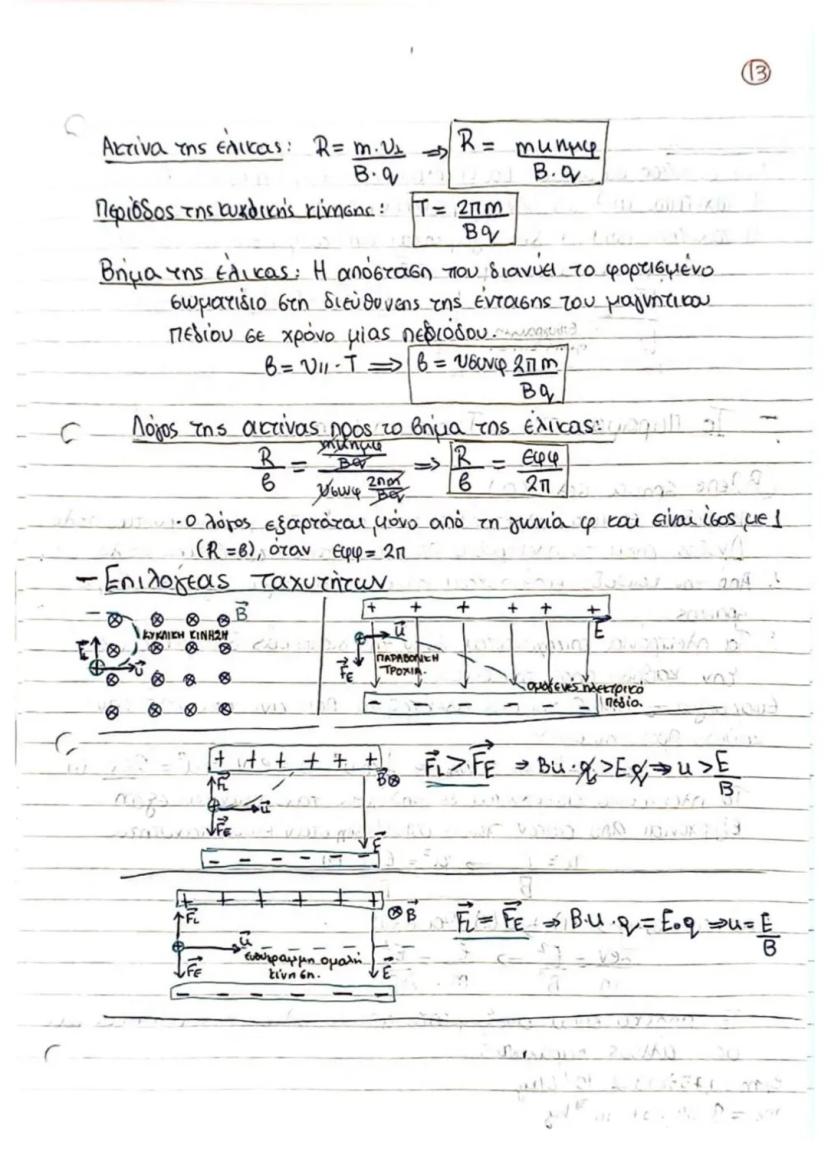 13
Ακτίνα της έλικας: R = m·υ⊥ / B·q ⇒ R = mυημφ / B·q
Περίοδος της κυκλικής κίνησης: T = 2πm / Bq
Βήμα της έλικας: Η απόσταση που διανύει το φορτισμένο
σωματίδιο στη διεύθυνσης της έντασης του μαγνητικου
πεδίου σε χρόνο μίας περιόδου.
β = υ11 · T ⇒ β = υσυνφ 2πm / Bq
Λόγος της ακτίνας προς το βήμα της έλικας:
R / β = mυημφ / Bq / υσυνφ 2πm / Bq ⇒ R / β = εφφ / 2π
· Ο λόγος εξαρτάται μόνο από τη γωνία φ και είναι ίσος με 1
(R = β), όταν εφφ = 2π
- Επιλογέας ταχυτήτων
B
ΚΥΚΛΙΚΗ ΚΙΝΗΣΗ
FL
u
+ + + + + +
E
u
FE
ΠΑΡΑΒΟΛΙΚΗ
ΤΡΟΧΙΑ.
ομογενές ηλεκτρικό
πεδίο.
+ + + + + +
FL
B ⊗
u
FE
E
FL > FE ⇒ Bu·q > Eq ⇒ u > E / B
+ + + + + +
FL
⊗ B
u
ευθύγραμμη ομαλή
κίνηση.
FE
E
FL = FE ⇒ B·u·q = E·q ⇒ u = E / B